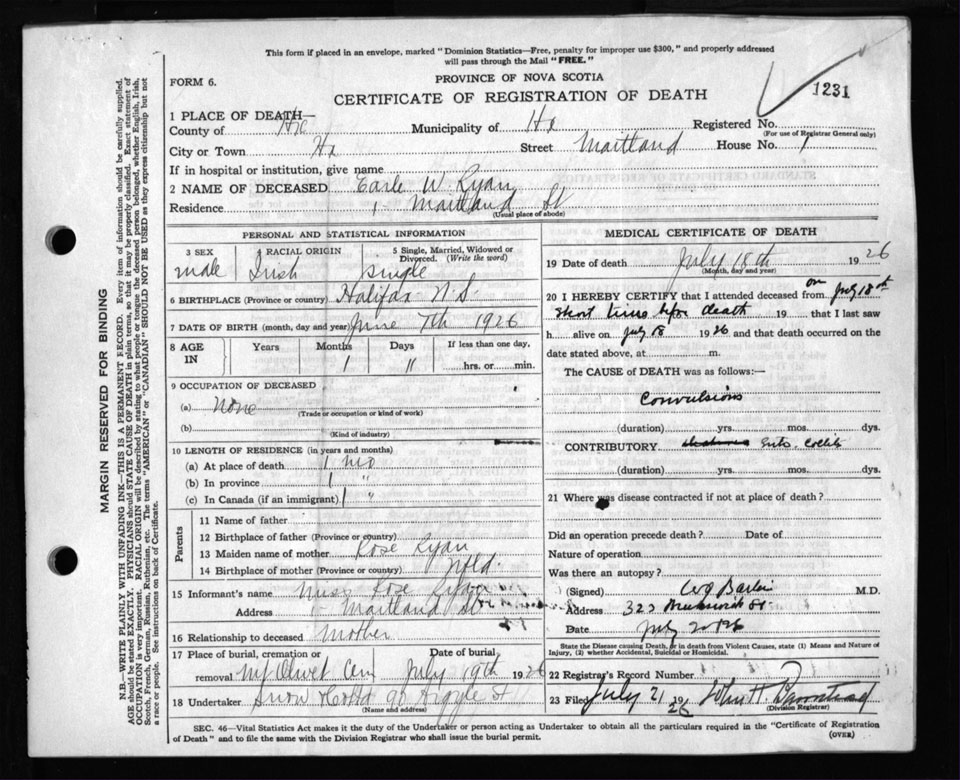 This form if placed in an envelope, marked "Dominion Statistics—Free, penalty for improper use $300," and properly addressed
will pass through the Mail "FREE."
FORM 6.
PROVINCE OF NOVA SCOTIA
CERTIFICATE OF REGISTRATION OF DEATH
1231
1 PLACE OF DEATH—
County of Hx Municipality of Hx Registered No.
(For use of Registrar General only)
City or Town Hx Street Maitland House No. 1
If in hospital or institution, give name
2 NAME OF DECEASED Earle W Ryan
Residence 1 Maitland St
(Usual place of abode)
PERSONAL AND STATISTICAL INFORMATION
3 SEX 4 RACIAL ORIGIN 5 Single, Married, Widowed or Divorced. (Write the word)
male Irish single
6 BIRTHPLACE (Province or country) Halifax N.S.
7 DATE OF BIRTH (month, day and year) June 7th 1926
8 AGE IN Years Months Days If less than one day,
1 11 hrs. or min.
9 OCCUPATION OF DECEASED
(a) none
(Trade or occupation or kind of work)
(b)
(Kind of industry)
10 LENGTH OF RESIDENCE (in years and months)
(a) At place of death 1 mo
(b) In province 1 "
(c) In Canada (if an immigrant) 1 "
Parents
11 Name of father
12 Birthplace of father (Province or country)
13 Maiden name of mother Rose Ryan
14 Birthplace of mother (Province or country) Nfld.
15 Informant's name Miss Rose Ryan
Address 1 Maitland St
16 Relationship to deceased Mother
17 Place of burial, cremation or removal Date of burial,
Mt Olivet Cem July 19th 1926
18 Undertaker Snow 90 Argyle St
(Name and address)
MEDICAL CERTIFICATE OF DEATH
19 Date of death July 18th 1926
(Month, day and year)
20 I HEREBY CERTIFY that I attended deceased from on July 18th
short time before death 19 that I last saw
h alive on July 18 1926 and that death occurred on
date stated above, at m.
The CAUSE of DEATH was as follows:—
Convulsions
(duration) yrs. mos. dys.
CONTRIBUTORY Ento. Colitis
(duration) yrs. mos. dys.
21 Where was disease contracted if not at place of death?
Did an operation precede death? Date of
Nature of operation
Was there an autopsy?
(Signed) M.D.
Address 323 Brunswick St.
Date July 20 1926
State the Disease causing Death, or in death from Violent Causes, state (1) Means and Nature of
Injury, (2) whether Accidental, Suicidal or Homicidal.
22 Registrar's Record Number
23 Filed July 21 1926 John H Barnstead
(Division Registrar)
SEC. 46—Vital Statistics Act makes it the duty of the Undertaker or person acting as Undertaker to obtain all the particulars required in the "Certificate of Registration
of Death" and to file the same with the Division Registrar who shall issue the burial permit.
(OVER)
MARGIN RESERVED FOR BINDING
N.B.—WRITE PLAINLY WITH UNFADING INK—THIS IS A PERMANENT RECORD. Every item of information should be carefully supplied.
AGE should be stated EXACTLY. PHYSICIANS should STATE CAUSE OF DEATH in plain terms, so that it may be properly classified. Exact statement of
OCCUPATION is very important. RACIAL ORIGIN will be described by stating to what people or tongue the deceased person belonged, whether English, Irish,
Scotch, French, German, Russian, Ruthenian, etc. The terms "AMERICAN" or "CANADIAN" SHOULD NOT BE USED as they express citizenship but not
a race or people. See instructions on back of Certificate.